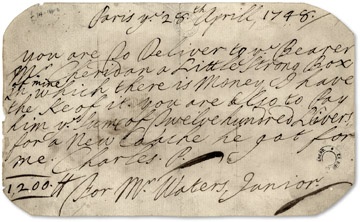 Paris ye. 28th Aprill 1748.
you are to Deliver to ye Bearer
Mr. Sheridan a Little Strong Box
of mine in which there is Money I have
the Ke of it. you are also to Pay
him ye Sume of Twelve hundred Livers
for a New Coache he got for
me. Charles. P.
1200.₶
For Mr. Waters, Junior.